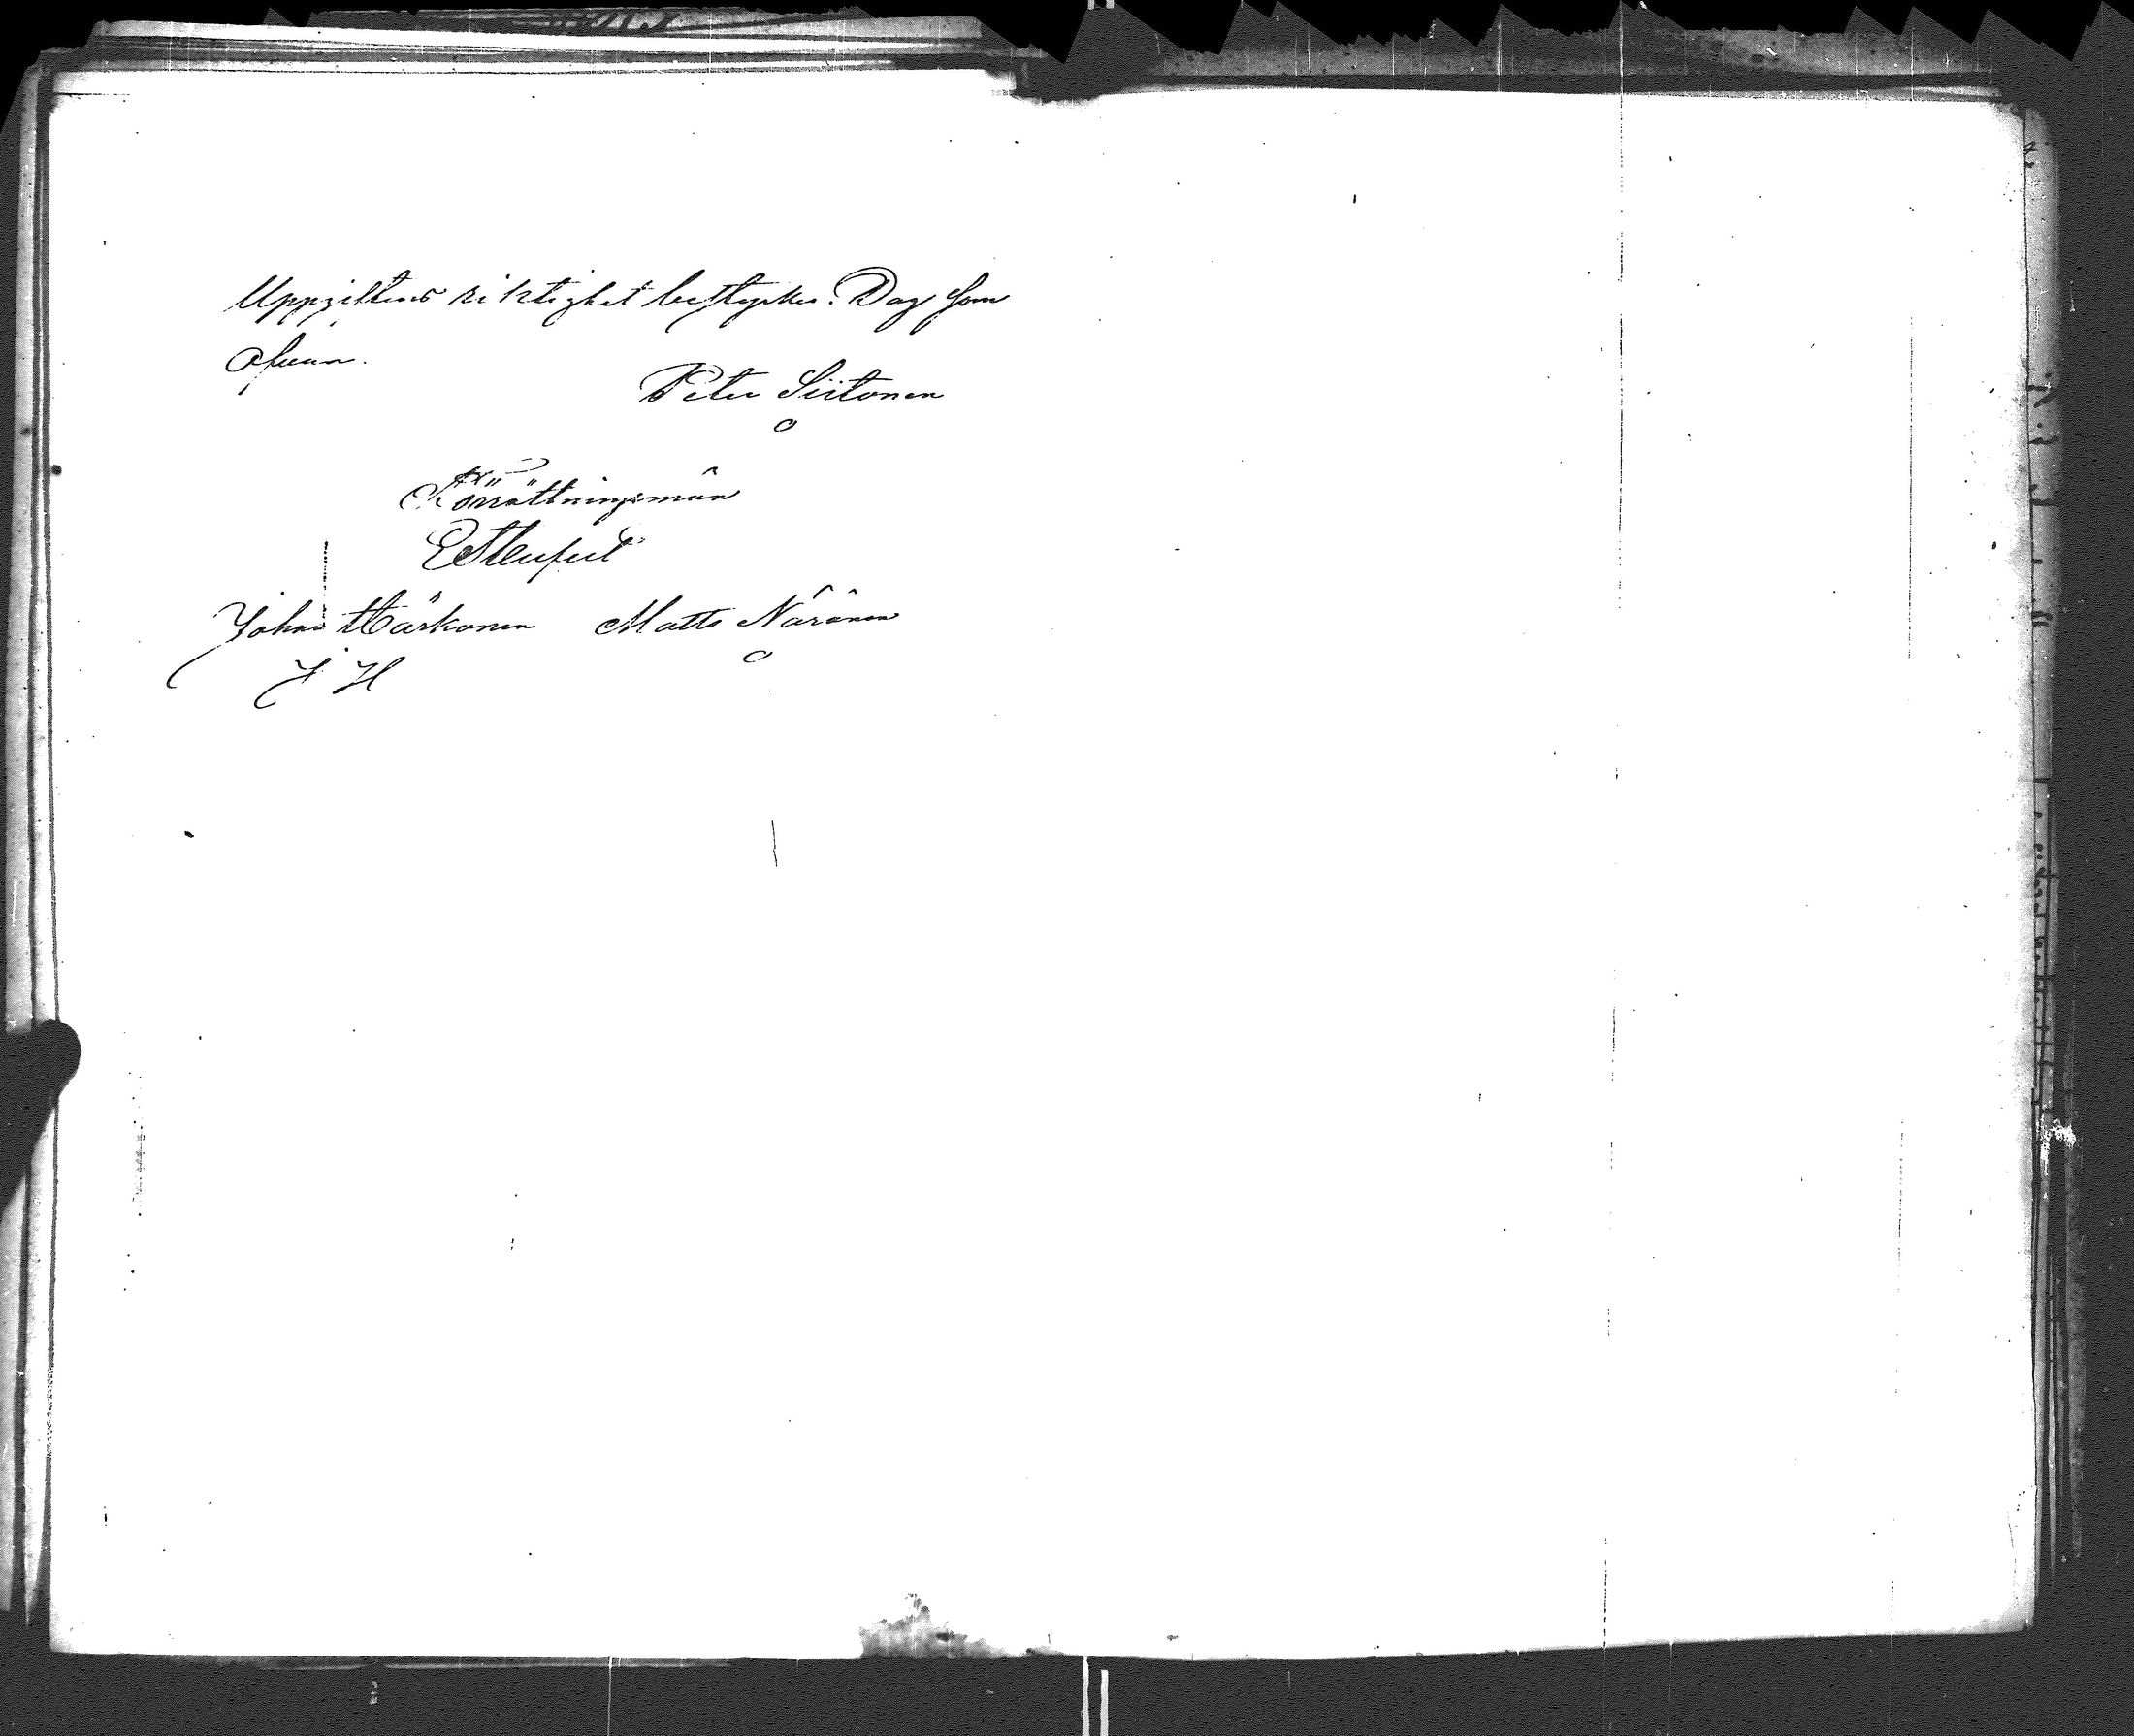 Uppgiftens riktighet bestyrkes. Dag som
ofvan.
Peter Siitonen
Förrättningsmän
Johan Härkonen Matts Näränen
J H